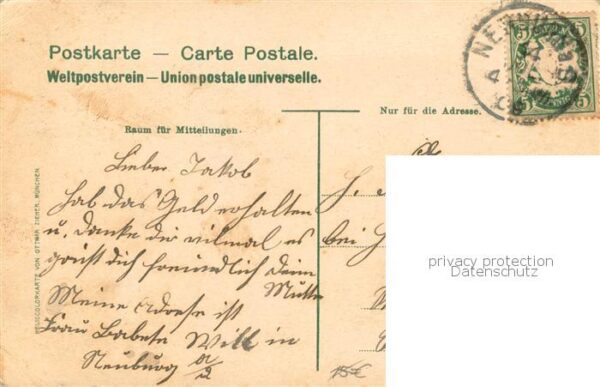 Postkarte — Carte Postale.
Weltpostverein — Union postale universelle.
NEUBURG
5 5
5 5
Nur für die Adresse.
Raum für Mitteilungen.
Lieber Jakob
hab das Geld erhalten
u. danke dir vilmal es
grüst dich freundlich deine
Mutter
Meine Adrese ist
Frau Babete Will in
Neuburg a/D
bei
privacy protection
Datenschutz
CHROMOCOLORKARTE VON OTTMAR ZIEHER, MÜNCHEN
15€